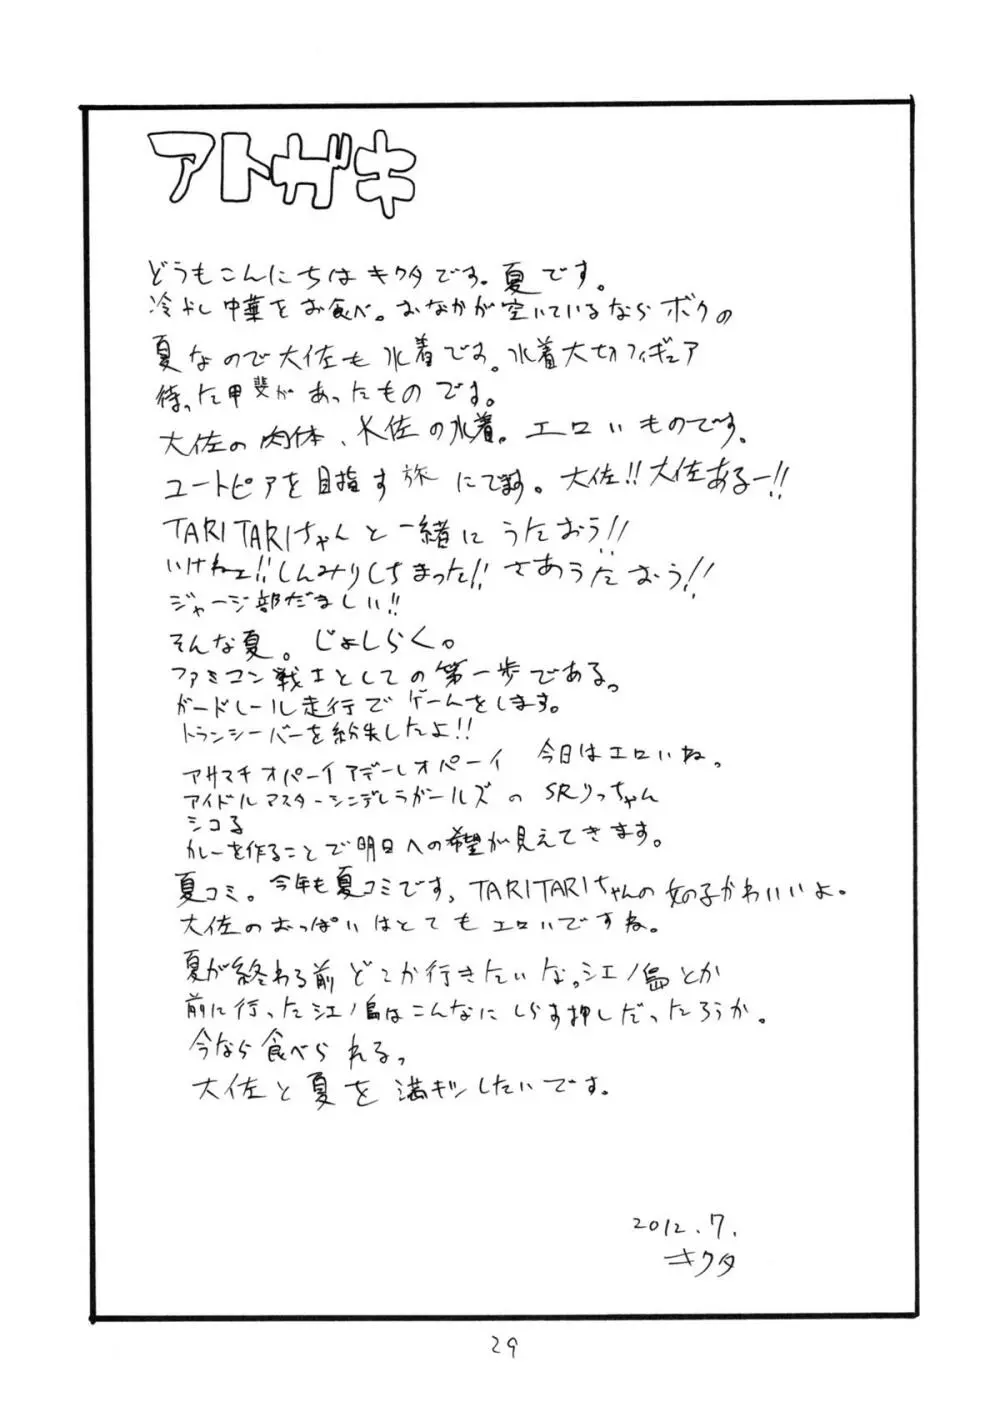 アトガキ
どうもこんにちはキクタです。夏です。
冷やし中華をお食べ。おなかが空いているならボクの
夏なので大佐も水着です。水着大切フィギュア
待った甲斐があったものです。
大佐の肉体、大佐の水着。エロいものです。
ユートピアを目指す旅にでます。大佐!!大佐あるー!!
TARITARIちゃんと一緒にうたおう!!
いけねェ!!しんみりしちまった!!さあうたおう!!
ジャージ部だましい!!
そんな夏。じょしらく。
ファミコン戦士としての第一歩である。
ガードレール走行でゲームをします。
トランシーバーを紛失したよ!!
アサマキオパーイアデーレオパーイ 今日はエロいね。
アイドルマスターシンデレラガールズのSRりっちゃん
シコる
カレーを作ることで明日への希望が見えてきます。
夏コミ。今年も夏コミです、TARITARIちゃんの女の子かわいいよ。
大佐のおっぱいはとてもエロいですね。
夏が終わる前どこか行きたいな。江ノ島とか
前に行った江ノ島はこんなにしらす押しだったろうか。
今なら食べられる。
大佐と夏を満ギツしたいです。
2012.7.
キクタ
29